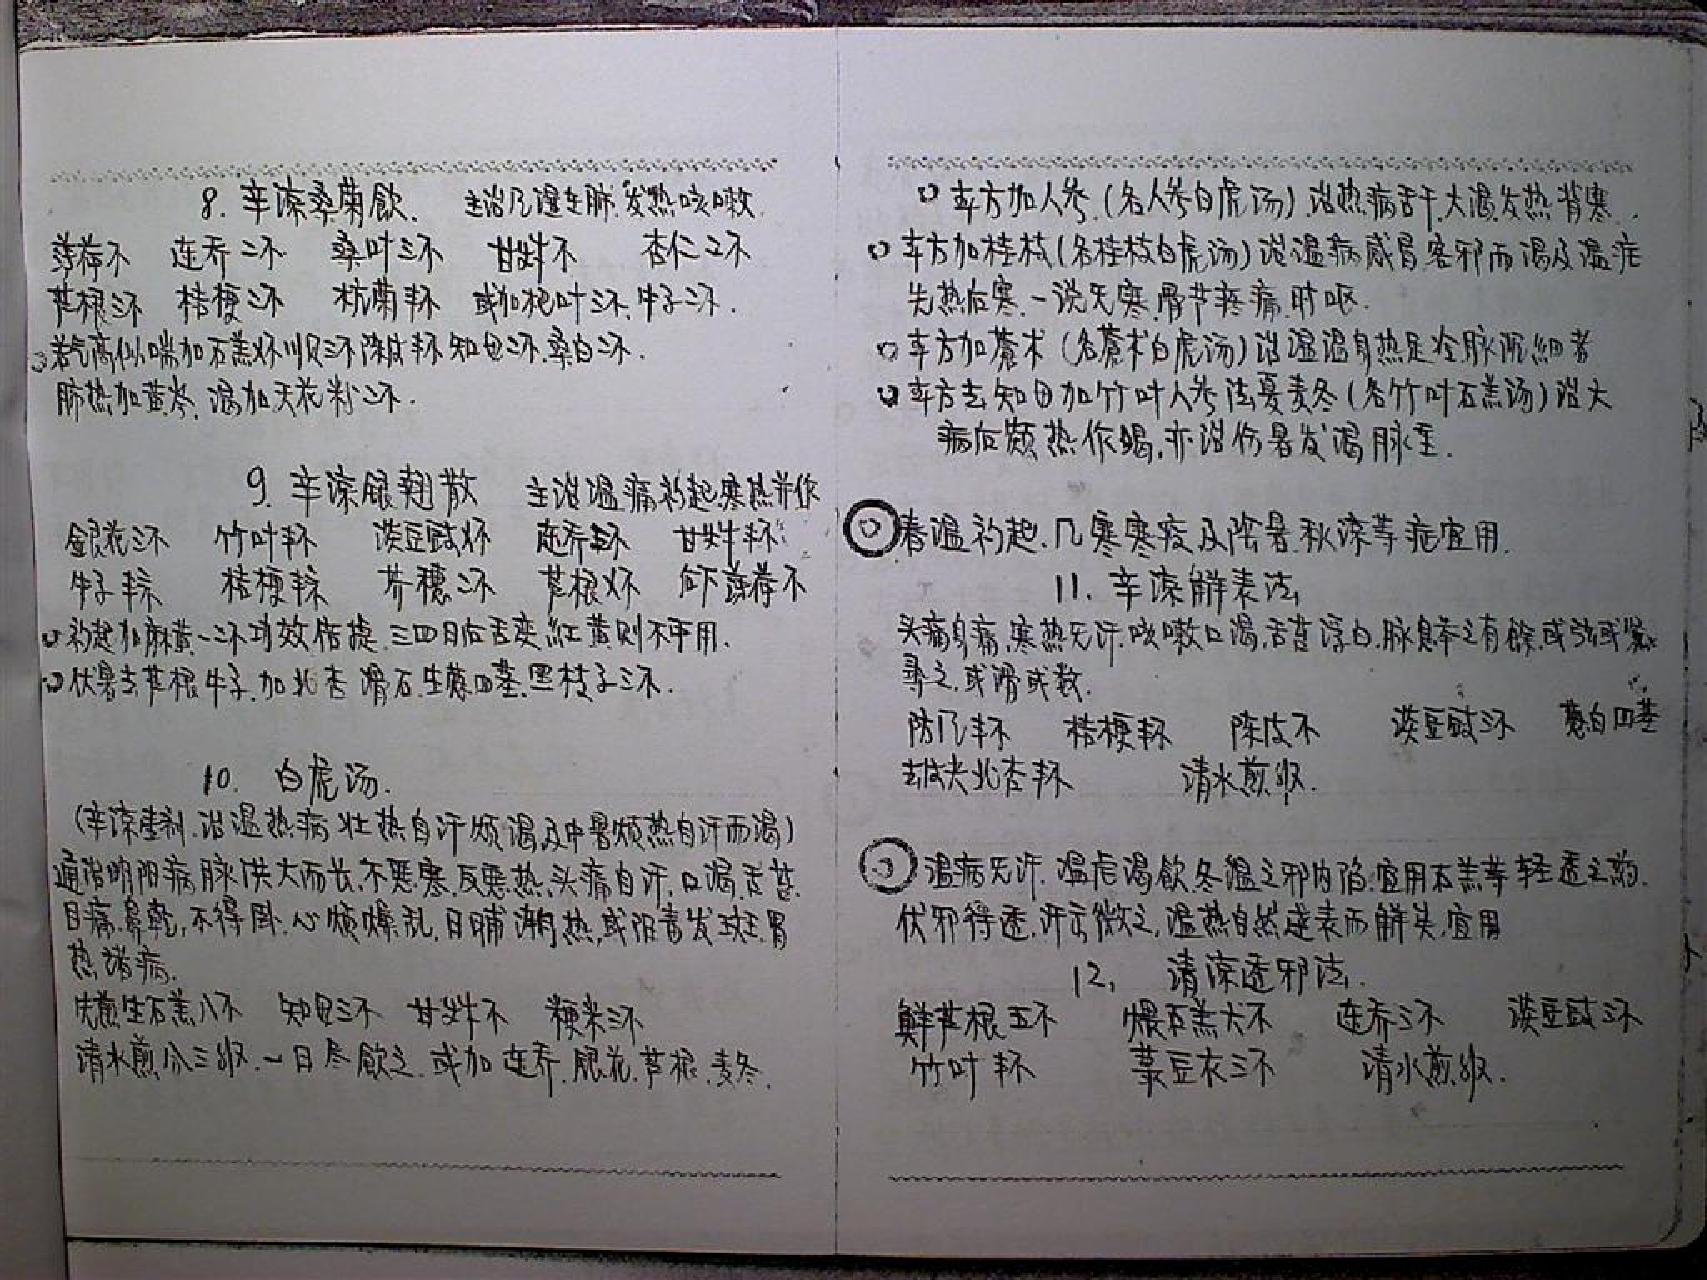 8. 辛凉桑菊飲. 主治风温在肺.发热咳嗽
薄荷不 连乔二不 桑叶三不 甘草不 杏仁二不
芦根三不 桔梗二不 杭菊半不 或加杷叶三不.牛子二不.
若气高似喘加石羔 川贝三不 陈皮半不 知母二不.桑白二不.
肺热加黄芩.渴加天花粉二不.
9. 辛凉銀翘散 主治温病初起.寒热并作
金銀花三不 竹叶半不 淡豆豉 连乔 甘草半不
牛子 桔梗 芥穗二不 芦根 后下薄荷不
初起加麻黄一二不功效倍捷.三四日后舌变紅黄则不可用.
伏暑去芦根牛子.加北杏 滑石.生葱四茎.黑枝子三不.
10. 白虎汤.
(辛凉重剂.治温热病壮热自汗烦渴及中暑烦热自汗而渴)
通治阳明病脉洪大而长.不恶寒.反恶热.头痛自汗.口渴舌苔.
目痛.鼻乾,不得卧.心烦燥乱,日晡潮热,或阳毒发斑.胃
热诸病.
先煎生石羔八不 知母三不 甘草不 粳米三不
清水煎分三服.一日尽飲之.或加连乔.银花.芦根.麦冬.
本方加人参.(名人参白虎汤)治热病舌干.大渴.发热背寒.
本方加桂枝(名桂枝白虎汤)治温病感冒客邪而渴及温疟
先热后寒.一说无寒.骨节疼痛.时呕.
本方加蒼术(名蒼术白虎汤)治湿温身热足冷脉沉細者
本方去知母加竹叶人参法夏麦冬(名竹叶石羔汤)治大
病后烦热作竭,亦治伤暑发渴脉
春温初起.凡寒寒疫及阴暑.秋凉等症宜用.
11. 辛凉解表法
头痛身痛.寒热无汗.咳嗽口渴.舌苔浮白.脉息举之有餘.或弦或紧
尋之.或滑或数.
防风半不 桔梗半不 陈皮不 淡豆豉三不 葱白四茎
去皮尖北杏半不 清水煎服.
温病无汗.温疟渴飲.冬温之邪内陷.宜用石羔等轻透之药.
伏邪得透.汗云微之.温热自然达表而解矣.宜用
12. 清凉透邪法.
鲜芦根五不 煨石羔六不 连乔三不 淡豆豉三不
竹叶半不 菉豆衣三不 清水煎服.